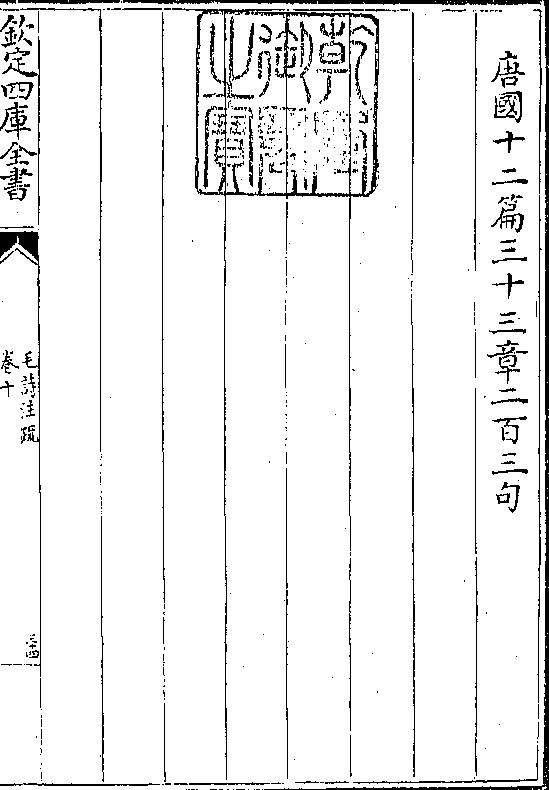 唐國十二篇三十三章二百三句
乾隆御覽之寶
欽定四庫全書
毛詩注疏
卷十
三十四